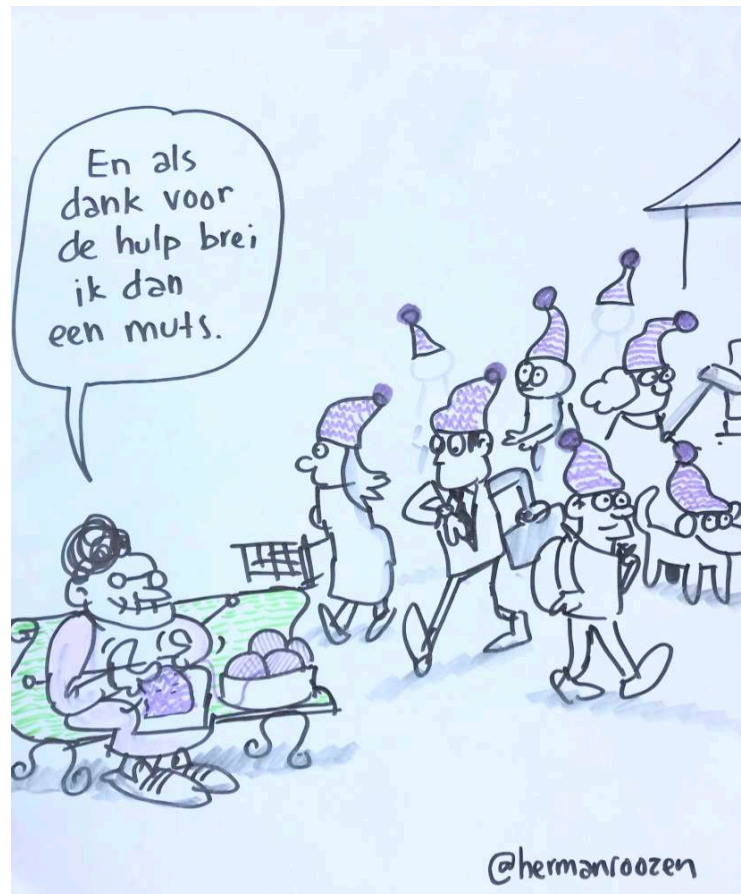 En als
dank voor
de hulp brei
ik dan
een muts.
@hermanroozen